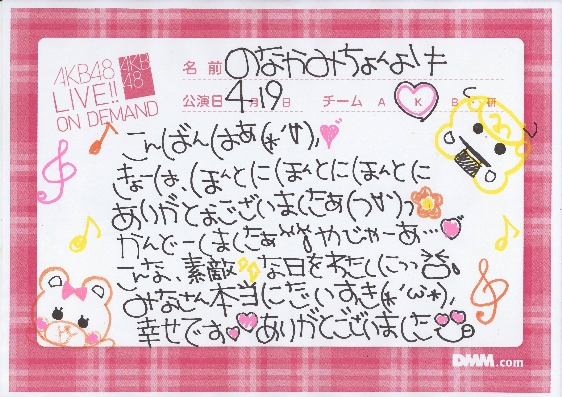 AKB48
LIVE!!
ON DEMAND
AKB
48
名前 のなかみちゃんより
公演日 4月19日 チーム A K B・研
こんばんはあ(*'∀'),
きょーは、ほんとにほんとにほんとに
ありがとおございましたあ(つ∀)
かんどーしましたあ やじゃーあ…
こんな、素敵な日をわたしにっ
みなさん本当にだいすき(*'ω'*),
幸せです ありがとございました
DMM.com